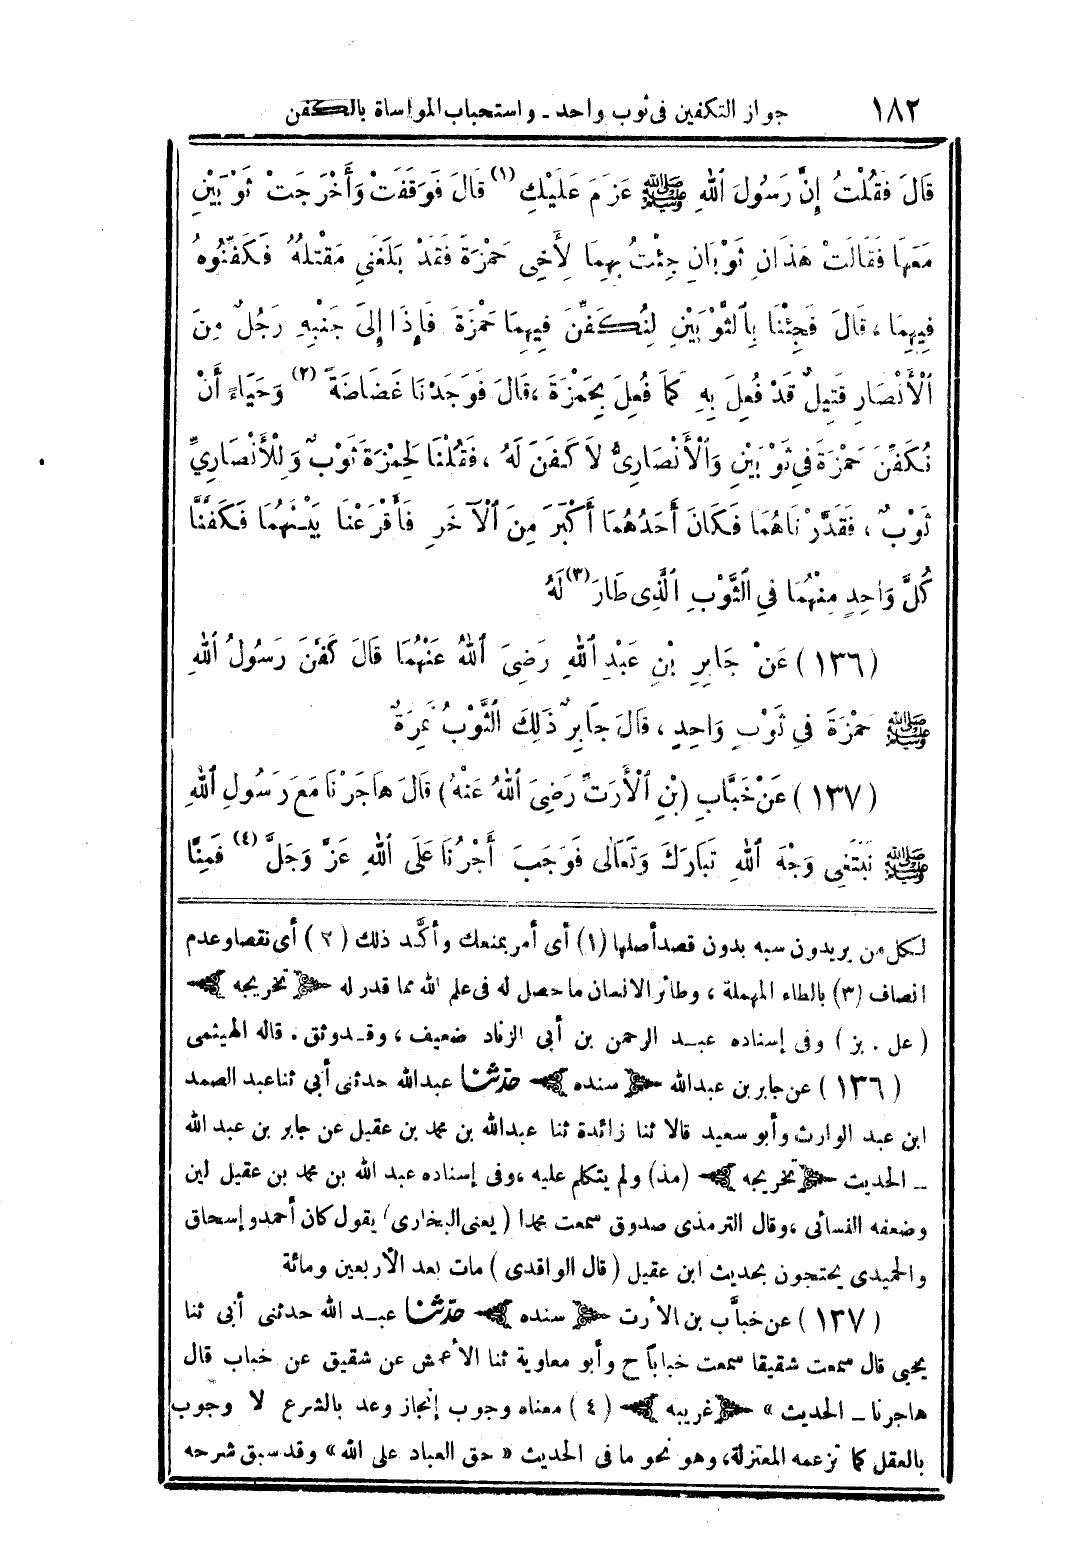 ١٨٢ جواز التكفين فى ثوب واحد ـ واستحباب المواساة بالكفن
قَالَ فَقُلْتُ إِنَّ رَسُولَ اللهِ ﷺ عَزَمَ عَلَيْكِ (١) قَالَ فَوَقَفَتْ وَأَخْرَجَتْ ثَوْبَيْنِ
مَعَهَا فَقَالَتْ هَذَانِ ثَوْبَانِ جِئْتُ بِهِمَا لِأَخِى حَمْزَةَ فَقَدْ بَلَغَنِي مَقْتَلُهُ فَكَفِّنُوهُ
فِيهِمَا ، قَالَ فَجِئْنَا بِالثَّوْبَيْنِ لِنُكَفِّنَ فِيهِمَا حَمْزَةَ فَإِذَا إِلَى جَنْبِهِ رَجُلٌ مِنَ
الْأَنْصَارِ قَتِيلٌ قَدْ فُعِلَ بِهِ كَمَا فُعِلَ بِحَمْزَةَ ،قَالَ فَوَجَدْنَا غَضَاضَةً (٢) وَحَيَاءً أَنْ
نُكَفِّنَ حَمْزَةَ فِي ثَوْبَيْنِ وَالْأَنْصَارِىُّ لاَ كَفَنَ لَهُ ، فَقُلْنَا لِحَمْزَةَ ثَوْبٌ وَلِلْأَنْصَارِيِّ
ثَوْبٌ ، فَقَدَّرْنَاهُمَا فَكَانَ أَحَدُهُمَا أَكْبَرَ مِنَ الْآخَرِ فَأَقْرَعْنَا بَيْنَهُمَا فَكَفَّنَّا
كُلَّ وَاحِدٍ مِنْهُمَا فِي الثَّوْبِ الَّذِى طَارَ (٣) لَهُ
(١٣٦) عَنْ جَابِرِ بْنِ عَبْدِ اللهِ رَضِىَ اللهُ عَنْهُمَا قَالَ كَفَّنَ رَسُولُ اللهِ
ﷺ حَمْزَةَ فِي ثَوْبٍ وَاحِدٍ ، قَالَ جَابِرٌ ذَلِكَ الثَّوْبُ نَمِرَةٌ
(١٣٧) عَنْ خَبَّابِ (بْنِ الْأَرَتِّ رَضِىَ اللهُ عَنْهُ) قَالَ هَاجَرْنَا مَعَ رَسُولِ اللهِ
ﷺ نَبْتَغِى وَجْهَ اللهِ تَبَارَكَ وَتَعَالَى فَوَجَبَ أَجْرُنَا عَلَى اللهِ عَزَّ وَجَلَّ (٤) فَمِنَّا
لكل من يريدون سبه بدون قصد أصلها (١) أى أمر بمنعك وأكد ذلك (٢) أى نقصا وعدم
انصاف (٣) بالطاء المهملة ، وطائر الانسان ما حصل له فى علم الله مما قدر له ﴿تخريجه﴾
(عل . بز) وفى إسناده عبد الرحمن بن أبي الزناد ضعيف ، وقد وثق . قاله الهيثمى
(١٣٦) عن جابر بن عبدالله ﴿سنده﴾ حدثنا عبدالله حدثنى أبي ثنا عبد الصمد
ابن عبد الوارث وأبو سعيد قالا ثنا زائدة ثنا عبدالله بن محمد بن عقيل عن جابر بن عبد الله
ـ الحديث ﴿تخريجه﴾ (مذ) ولم يتكلم عليه ،وفى إسناده عبد الله بن محمد بن عقيل لين
وضعفه النسائى ،وقال الترمذى صدوق سمعت محمدا (يعنى البخارى) يقول كان أحمد وإسحاق
والحميدى يحتجون بحديث ابن عقيل (قال الواقدى) مات بعد الأربعين ومائة
(١٣٧) عن خباب بن الأرت ﴿سنده﴾ حدثنا عبد الله حدثنى أبى ثنا
يحيى قال سمعت شقيقا سمعت خباباً ح وأبو معاوية ثنا الأعمش عن شقيق عن خباب قال
هاجرنا ـ الحديث » ﴿غريبه﴾ (٤) معناه وجوب إنجاز وعد بالشرع لا وجوب
بالعقل كما تزعمه المعتزلة، وهو نحو ما فى الحديث « حق العباد على الله» وقد سبق شرحه